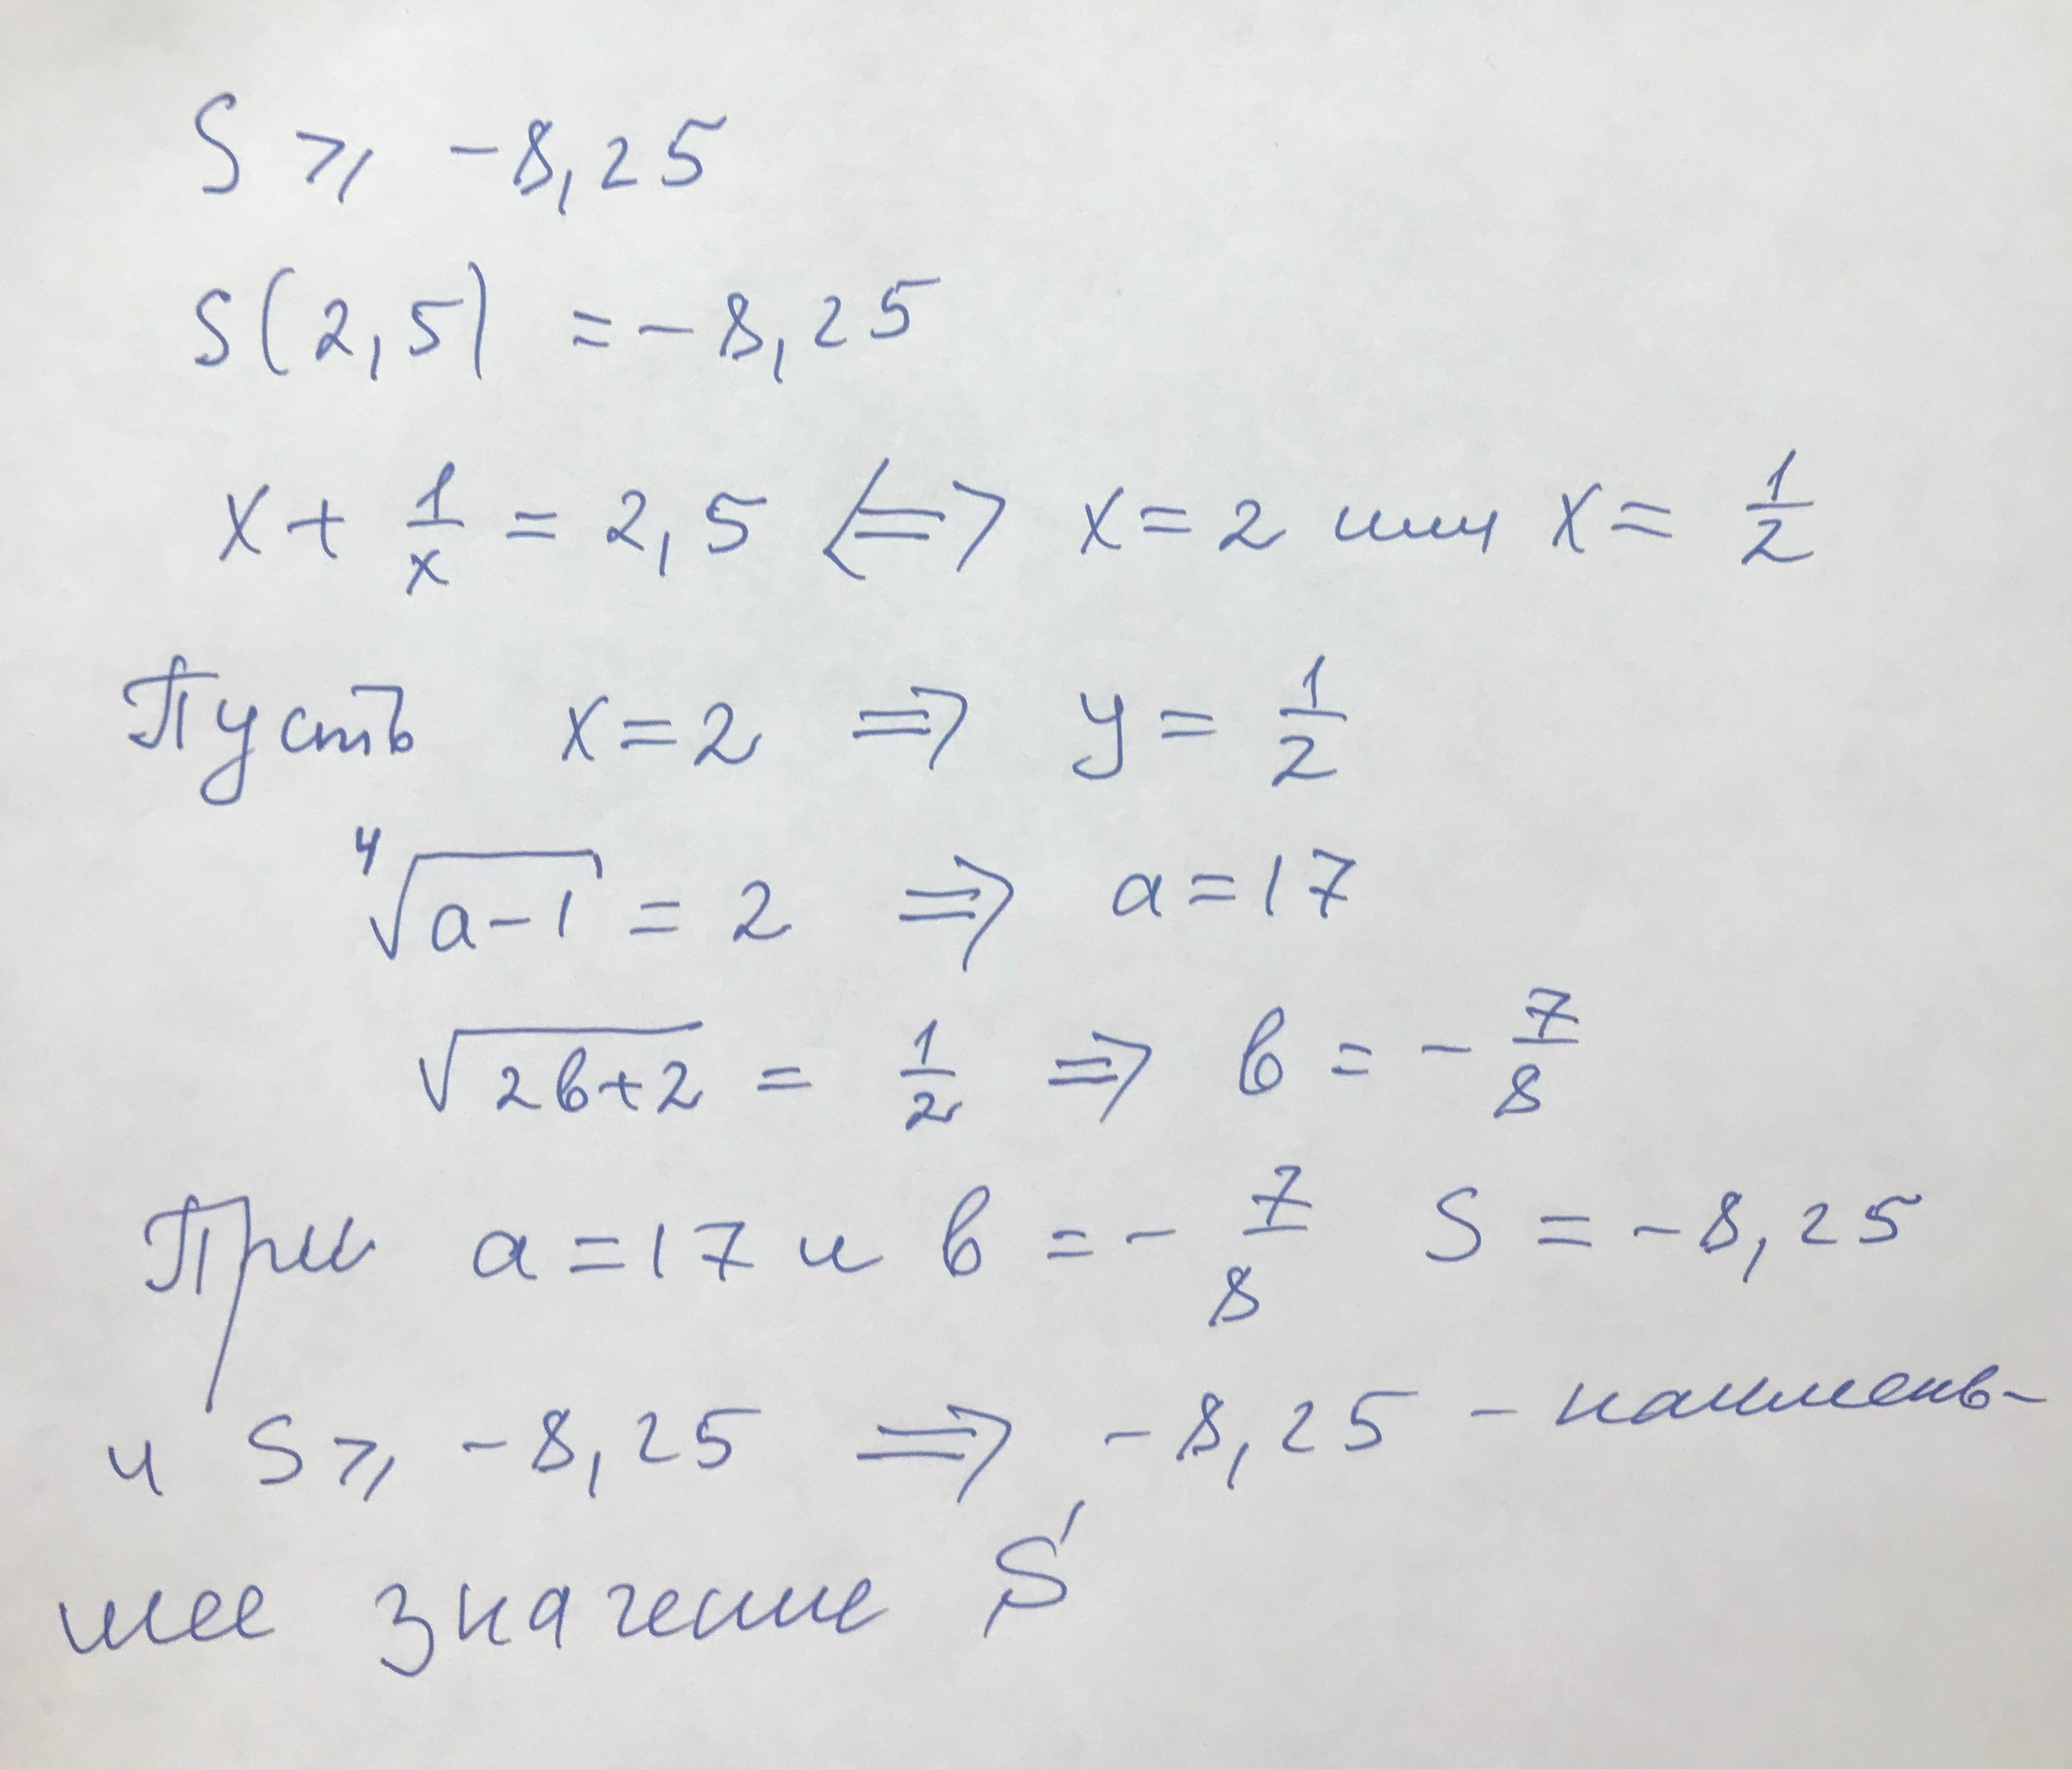 S ⩾ -8,25
S(2,5) = -8,25
x + 1/x = 2,5 <=> x = 2 или x = 1/2
Пусть x = 2 => y = 1/2
⁴√(a-1) = 2 => a = 17
√(2b+2) = 1/2 => b = - 7/8
При a = 17 и b = - 7/8 S = -8,25
и S ⩾ -8,25 => -8,25 - наимень-
шее значение S